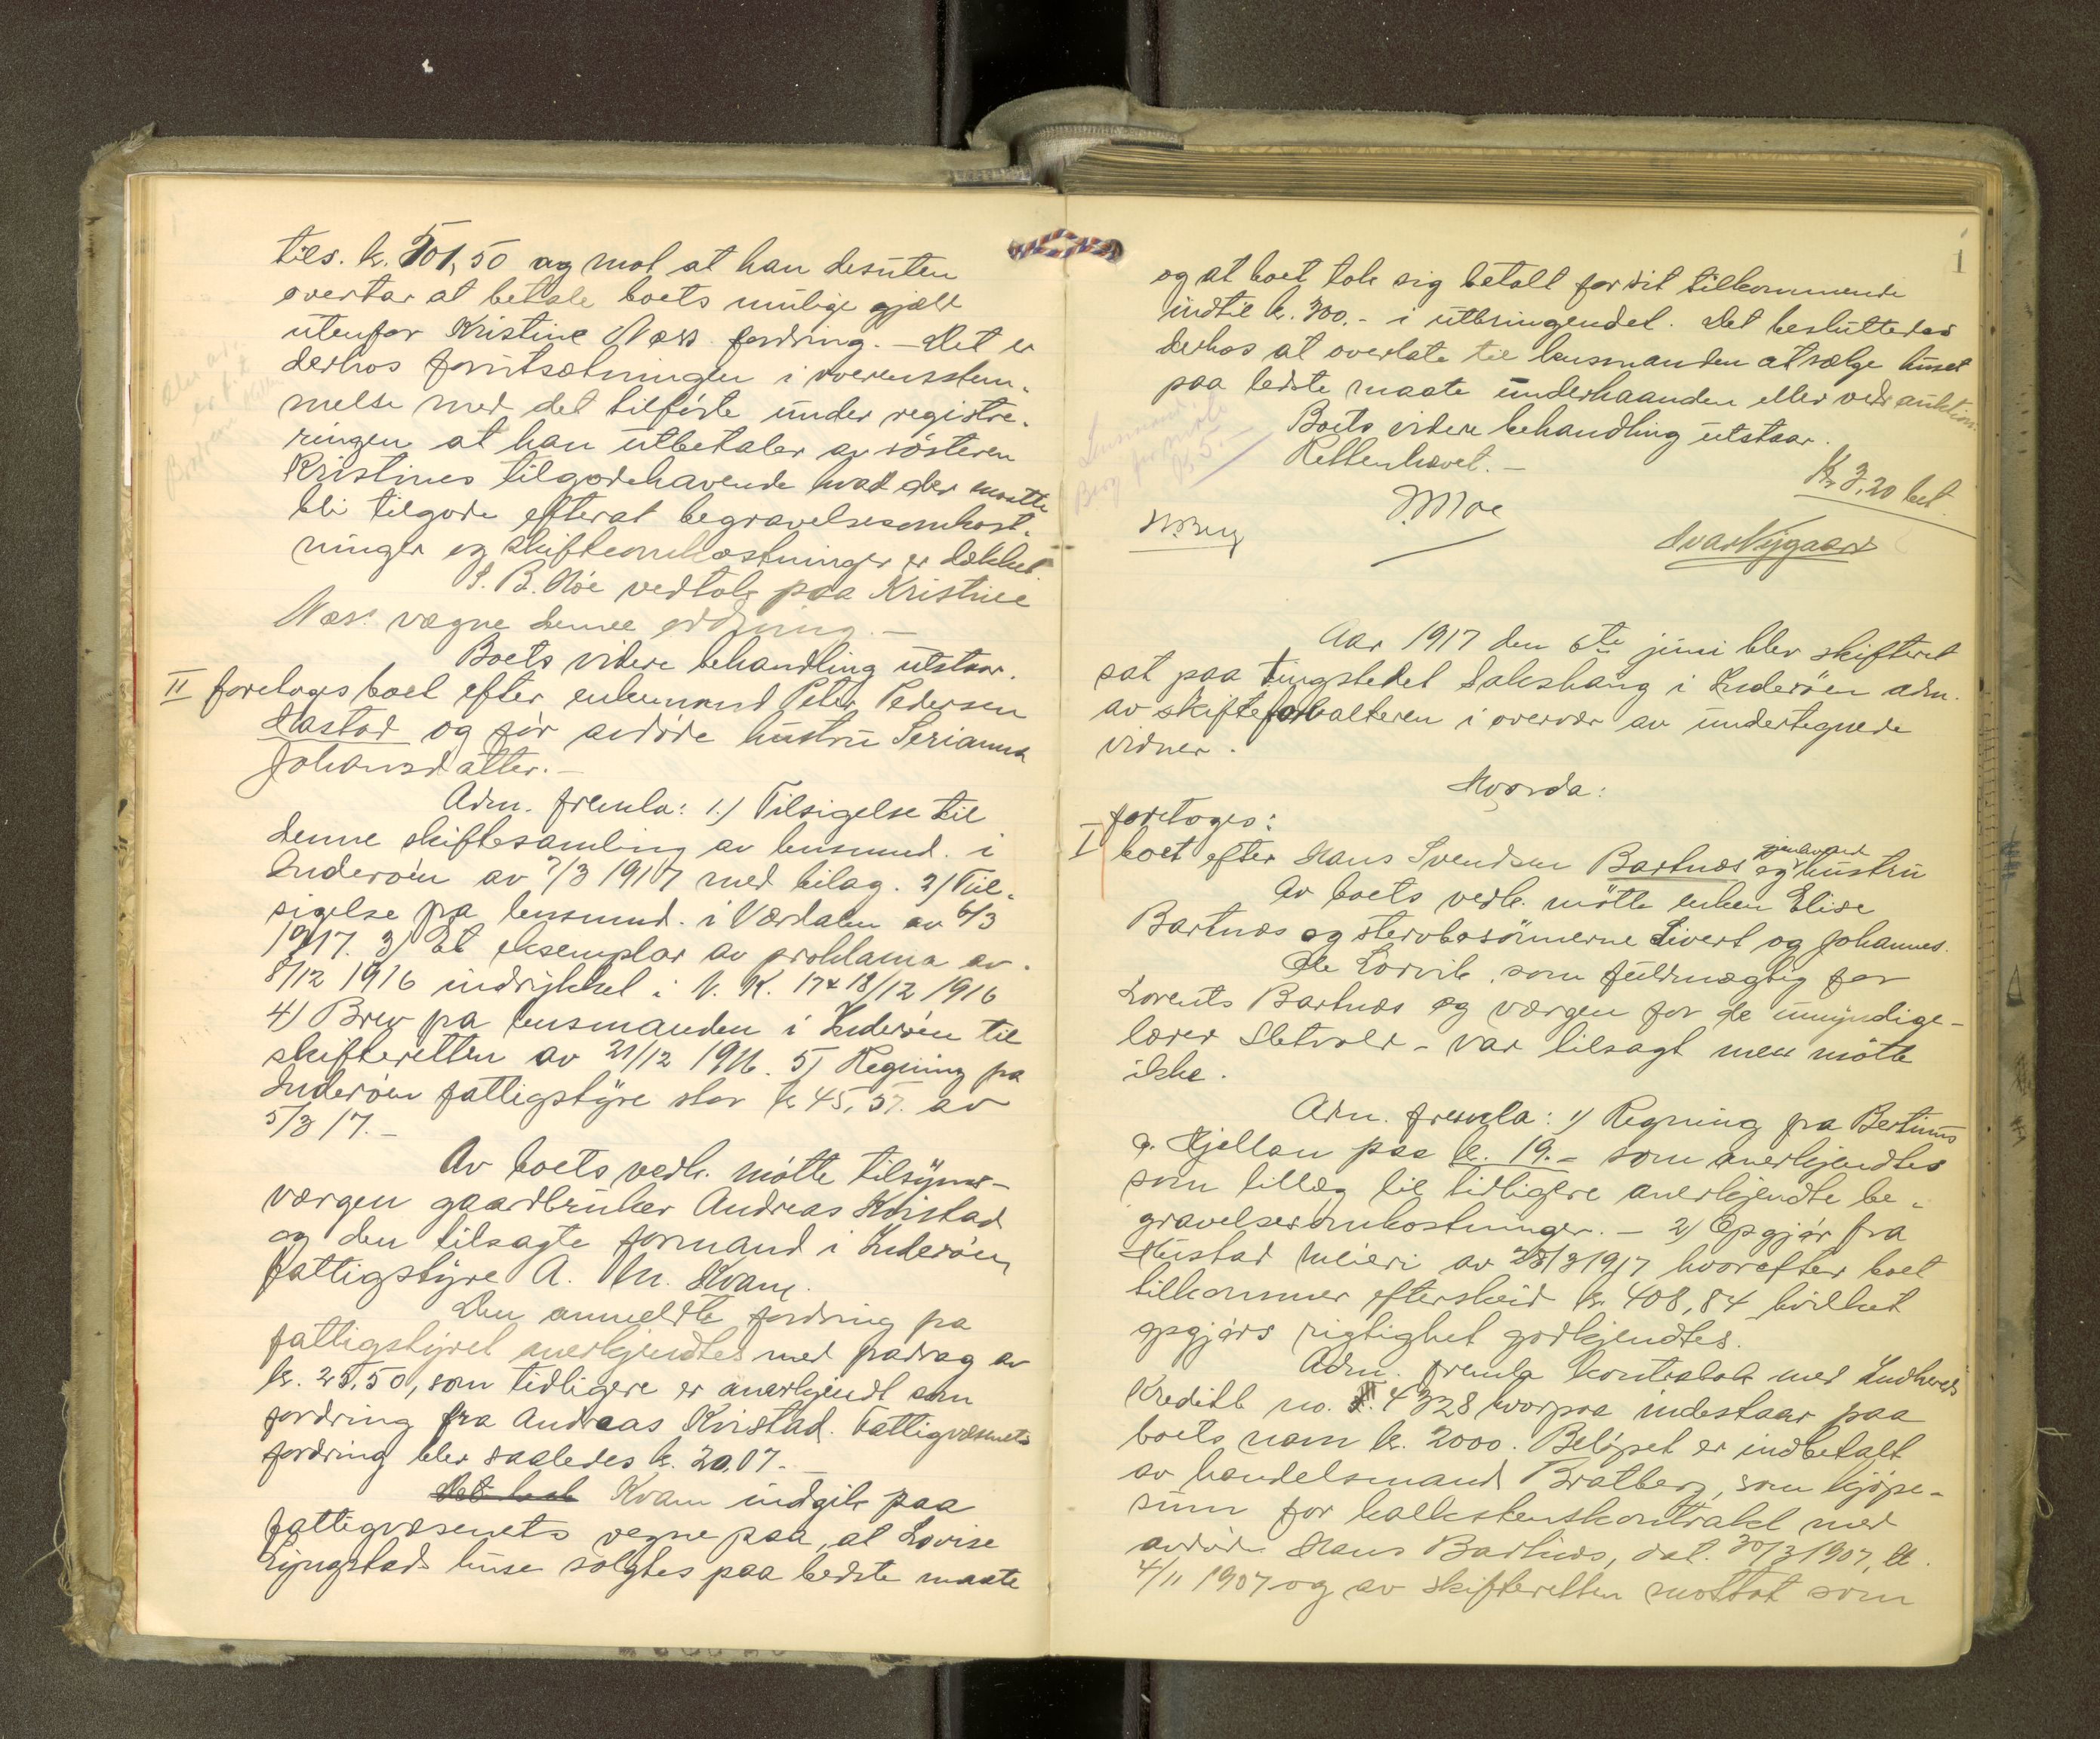 tils. kr. 501,50 og mot at han desuten
overtar at betale boets mulige gjæld
utenfor Kristine Næss fordring. – Det er
derhos forutsætningen i overensstem-
melse med det tilførte under registre-
ringen at han utbetaler av søsteren
Kristines tilgodehavende hvad der maatte
bli tilgode efterat begravelsesomkost-
ninger og skifteomkostninger er dækket.
S. B. Moe vedtok paa Kristine
Næss vegne denne ordning. –
Boets videre behandling utstaar.
II foretoges boet efter enkemand Peter Pedersen
Hastad og før avdøde hustru Serianna
Johansdatter. –
Adm. fremla: 1.) Tilsigelse til
denne skiftesamling av lensmnd. i
Inderøen av 7/3 1917 med bilag. 2) Til-
sigelse fra lensmnd. i Værdalen av 6/3
1917. 3) Et eksemplar av proklama av
8/12 1916 indrykket i N. K. 17 & 18/12 1916
4) Brev fra lensmanden i Inderøen til
skifteretten av 21/12 1916. 5) Regning fra
Inderøen fattigstyre stor kr 45,57. av
5/3 17. –
Av boets vedk. møtte tilsyns-
værgen gaardbruker Andreas Kvistad
og den tilsagte formand i Inderøen
fattigstyre A. M. Kvam.
Den anmeldte fordring fra
fattigstyret anerkjendtes med fradrag av
kr. 25,50, som tidligere er anerkjendt som
fordring fra Andreas Kvistad. Fattigvæsenets
fordring blev saaledes kr. 20,07. –
Det bad Kvam indgik paa
fattigvæsenets vegne paa, at Lovise
Lyngstads huse solgtes paa bedste maate
og at boet tok sig betalt for sit tilkommende
indtil kr. 300.- i utbringendet. Det besluttedes
derhos at overlate til lensmanden at sælge huset
paa bedste maate underhaanden eller ved auktion.
Boets videre behandling utstaar.
Retten hævet. –
Kr 3,20 bet.
J. Moe
N. Berg
Ivar Nygaard
Aar 1917 den 6te juni blev skifteret
sat paa tingstedet Sakshaug i Inderøen adm.
av skifteforvalteren i overvær av undertegnede
vidner.
Hvorda:
foretoges:
I boet efter Hans Svendsen Bartnæs og gjenlevende hustru
Av boets vedk. møtte enken Elise
Bartnæs og stervbosønnerne Sivert og Johannes.
Ole Lorvik som fuldmægtig for
Lorents Bartnæs og værgen for de umyndige –
lærer Sletvold – var tilsagt men møtte
ikke.
Adm. fremla: 1) Regning fra Bertinus
A. Hjellan paa kr. 19.- som anerkjendtes
som tillæg til tidligere anerkjendte be-
gravelsesomkostninger. – 2) Opgjør fra
Hustad meieri av 28/3 1917 hvorefter boet
tilkommer efterskud kr. 408,84 hvilket
opgjørs rigtighet godkjendtes.
Adm. fremla kontrabok med Indherreds
Kreditb no. 4328 hvorpaa indestaar paa
boets navn kr. 2000. Beløpet er indbetalt
av handelsmand Bratberg, som kjøpe-
sum for kalkstenskontrakt med
avdøde Hans Bartnæs, dat. 30/3 1907, tl.
4/11 1907 og av skifteretten mottat som